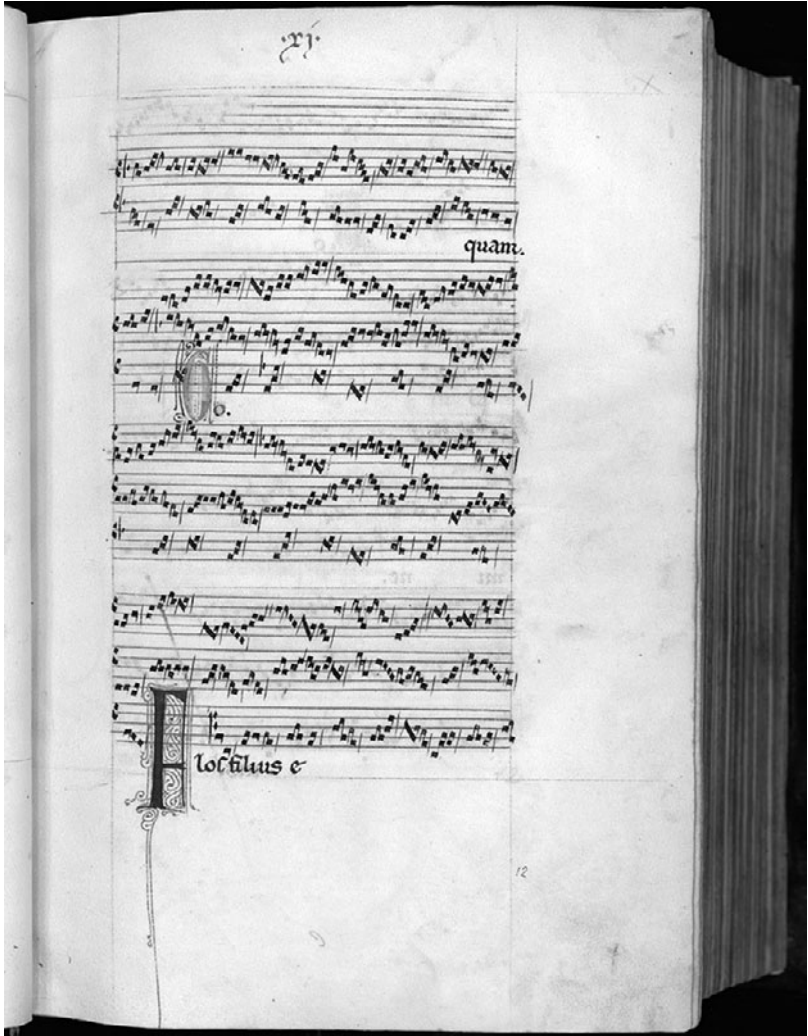 ·xj·
quam.
o.
Flos filius e
12